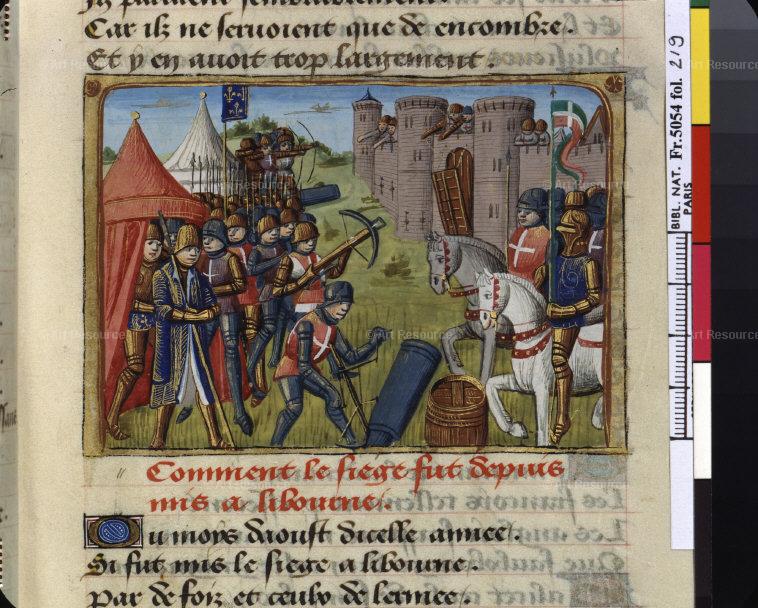 Car ilz ne seruoient que de encombre.
Et y en auoit trop largement.
Comment le siege fut depuis
mis a libourne.
Du moys daoust dicelle annee.
Si fut mis le siege a libourne.
Par de foiz et ceulx de lermee.
BIBL. NAT. Fr. 5054 fol. 219
PARIS
© Art Resource
© Art Resource
© Art Resource
© Art Resource
© Art Resource
© Art Resource